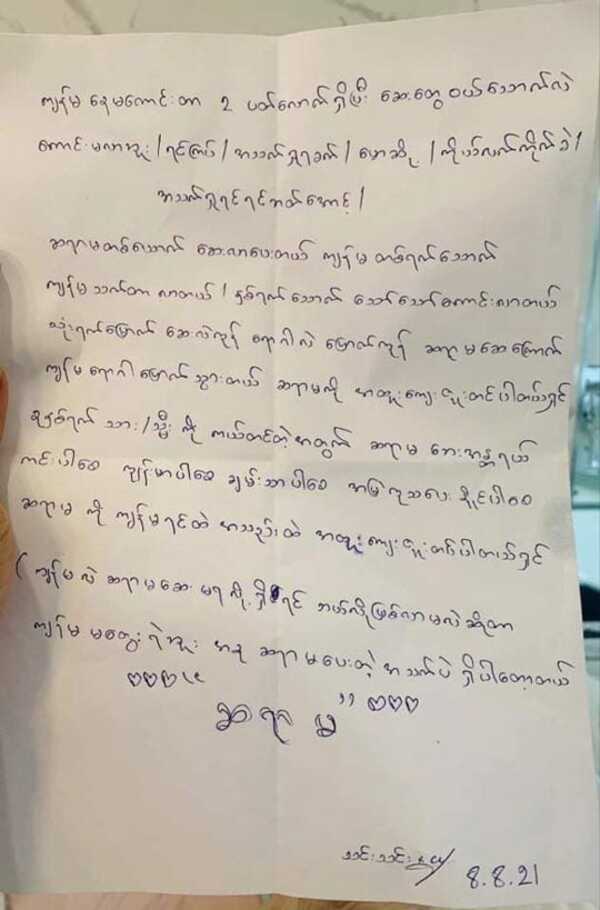 ကျွန်မ နေမကောင်းတာ ၃ ပတ်လောက်ရှိပြီး ဆေးတွေ ဝယ်သောက်လဲ
ကောင်းမလာဘူး / ရင်ကြပ် / အသက်ရှူရခက် / မောဆို့ / ကိုယ်လက်ကိုက်ခဲ /
အသက်ရှူရင် ရင်ဘတ်အောင့် /
ဆရာမတစ်ယောက် ဆေးလာပေးတယ် ကျွန်မ တစ်ရက်သောက်
ကျွန်မ သက်သာ လာတယ် / နှစ်ရက်သောက် တော်တော်ကောင်းလာတယ်
သုံးရက်မြောက် ဆေးလဲကုန် ရောဂါလဲ ပျောက်ကုန် ဆရာမဆေးကြောင့်
ကျွန်မ ရောဂါပျောက် သွားတယ် ဆရာမကို အထူးကျေးဇူးတင်ပါတယ်ရှင်
ခုနှစ်ရက် သား/သမီး ကို ကယ်တင်တဲ့အတွက် ဆရာမ ဘေးအန္တရာယ်
ကင်းပါစေ ကျန်းမာပါစေ ချမ်းသာပါစေ အမြဲကုသပေး နိုင်ပါစေ
ဆရာမ ကို ကျွန်မရင်ထဲ အသည်းထဲ အထူးကျေးဇူးတင်ပါတယ်ရှင်
( ကျွန်မလဲ ဆရာမဆေး မရလို့ ရှိရင် ဘယ်လိုဖြစ်လာမလဲဆိုတာ
ကျွန်မ မတွေးရဲဘူး အခု ဆရာမပေးတဲ့ အသက်ပဲ ရှိပါတော့တယ်
ဆရာမ
သင်းသင်း
8.8.21